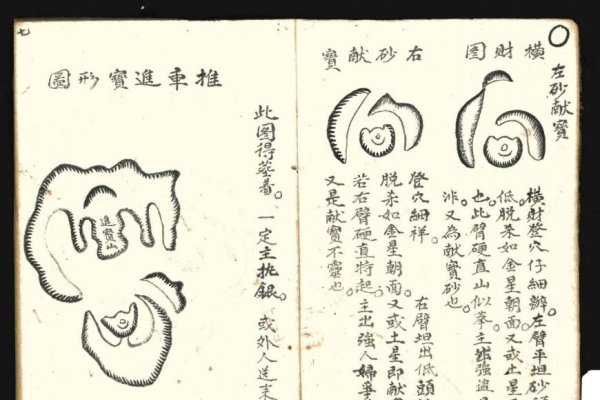 橫財圖
左砂献寶
橫財登穴仔細辦。左臂平坦砂頭
低脫朵如金星朝面又或土星
也。此臂硬直山似拳。主出強盜
㳍又為献寶砂也。
右砂献寶
登穴細祥。右臂坦出低頭
脫朵如金星朝面。又或土星即献
若右臂硬直特起。主出強人婦
又是献寶不靈也
七
推車進寶形圖
進寶山
此圖得塟着。一定主挑銀。或外人送來